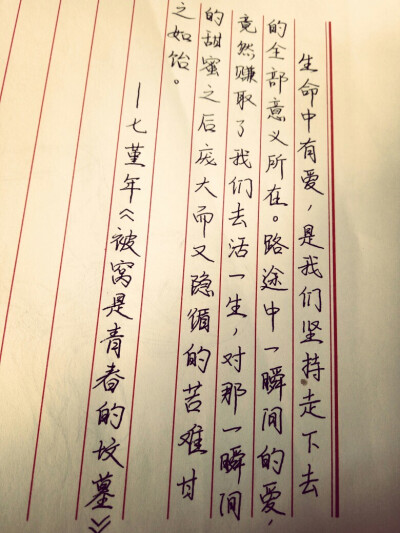 生命中有爱，是我们坚持走下去
的全部意义所在。路途中一瞬间的爱，
竟然赚取了我们去活一生，对那一瞬间
的甜蜜之后庞大而又隐循的苦难甘
之如饴。
—七堇年《被窝是青春的坟墓》